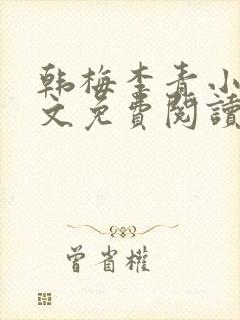 韩梅李青小
文免費閱讀
曾省權